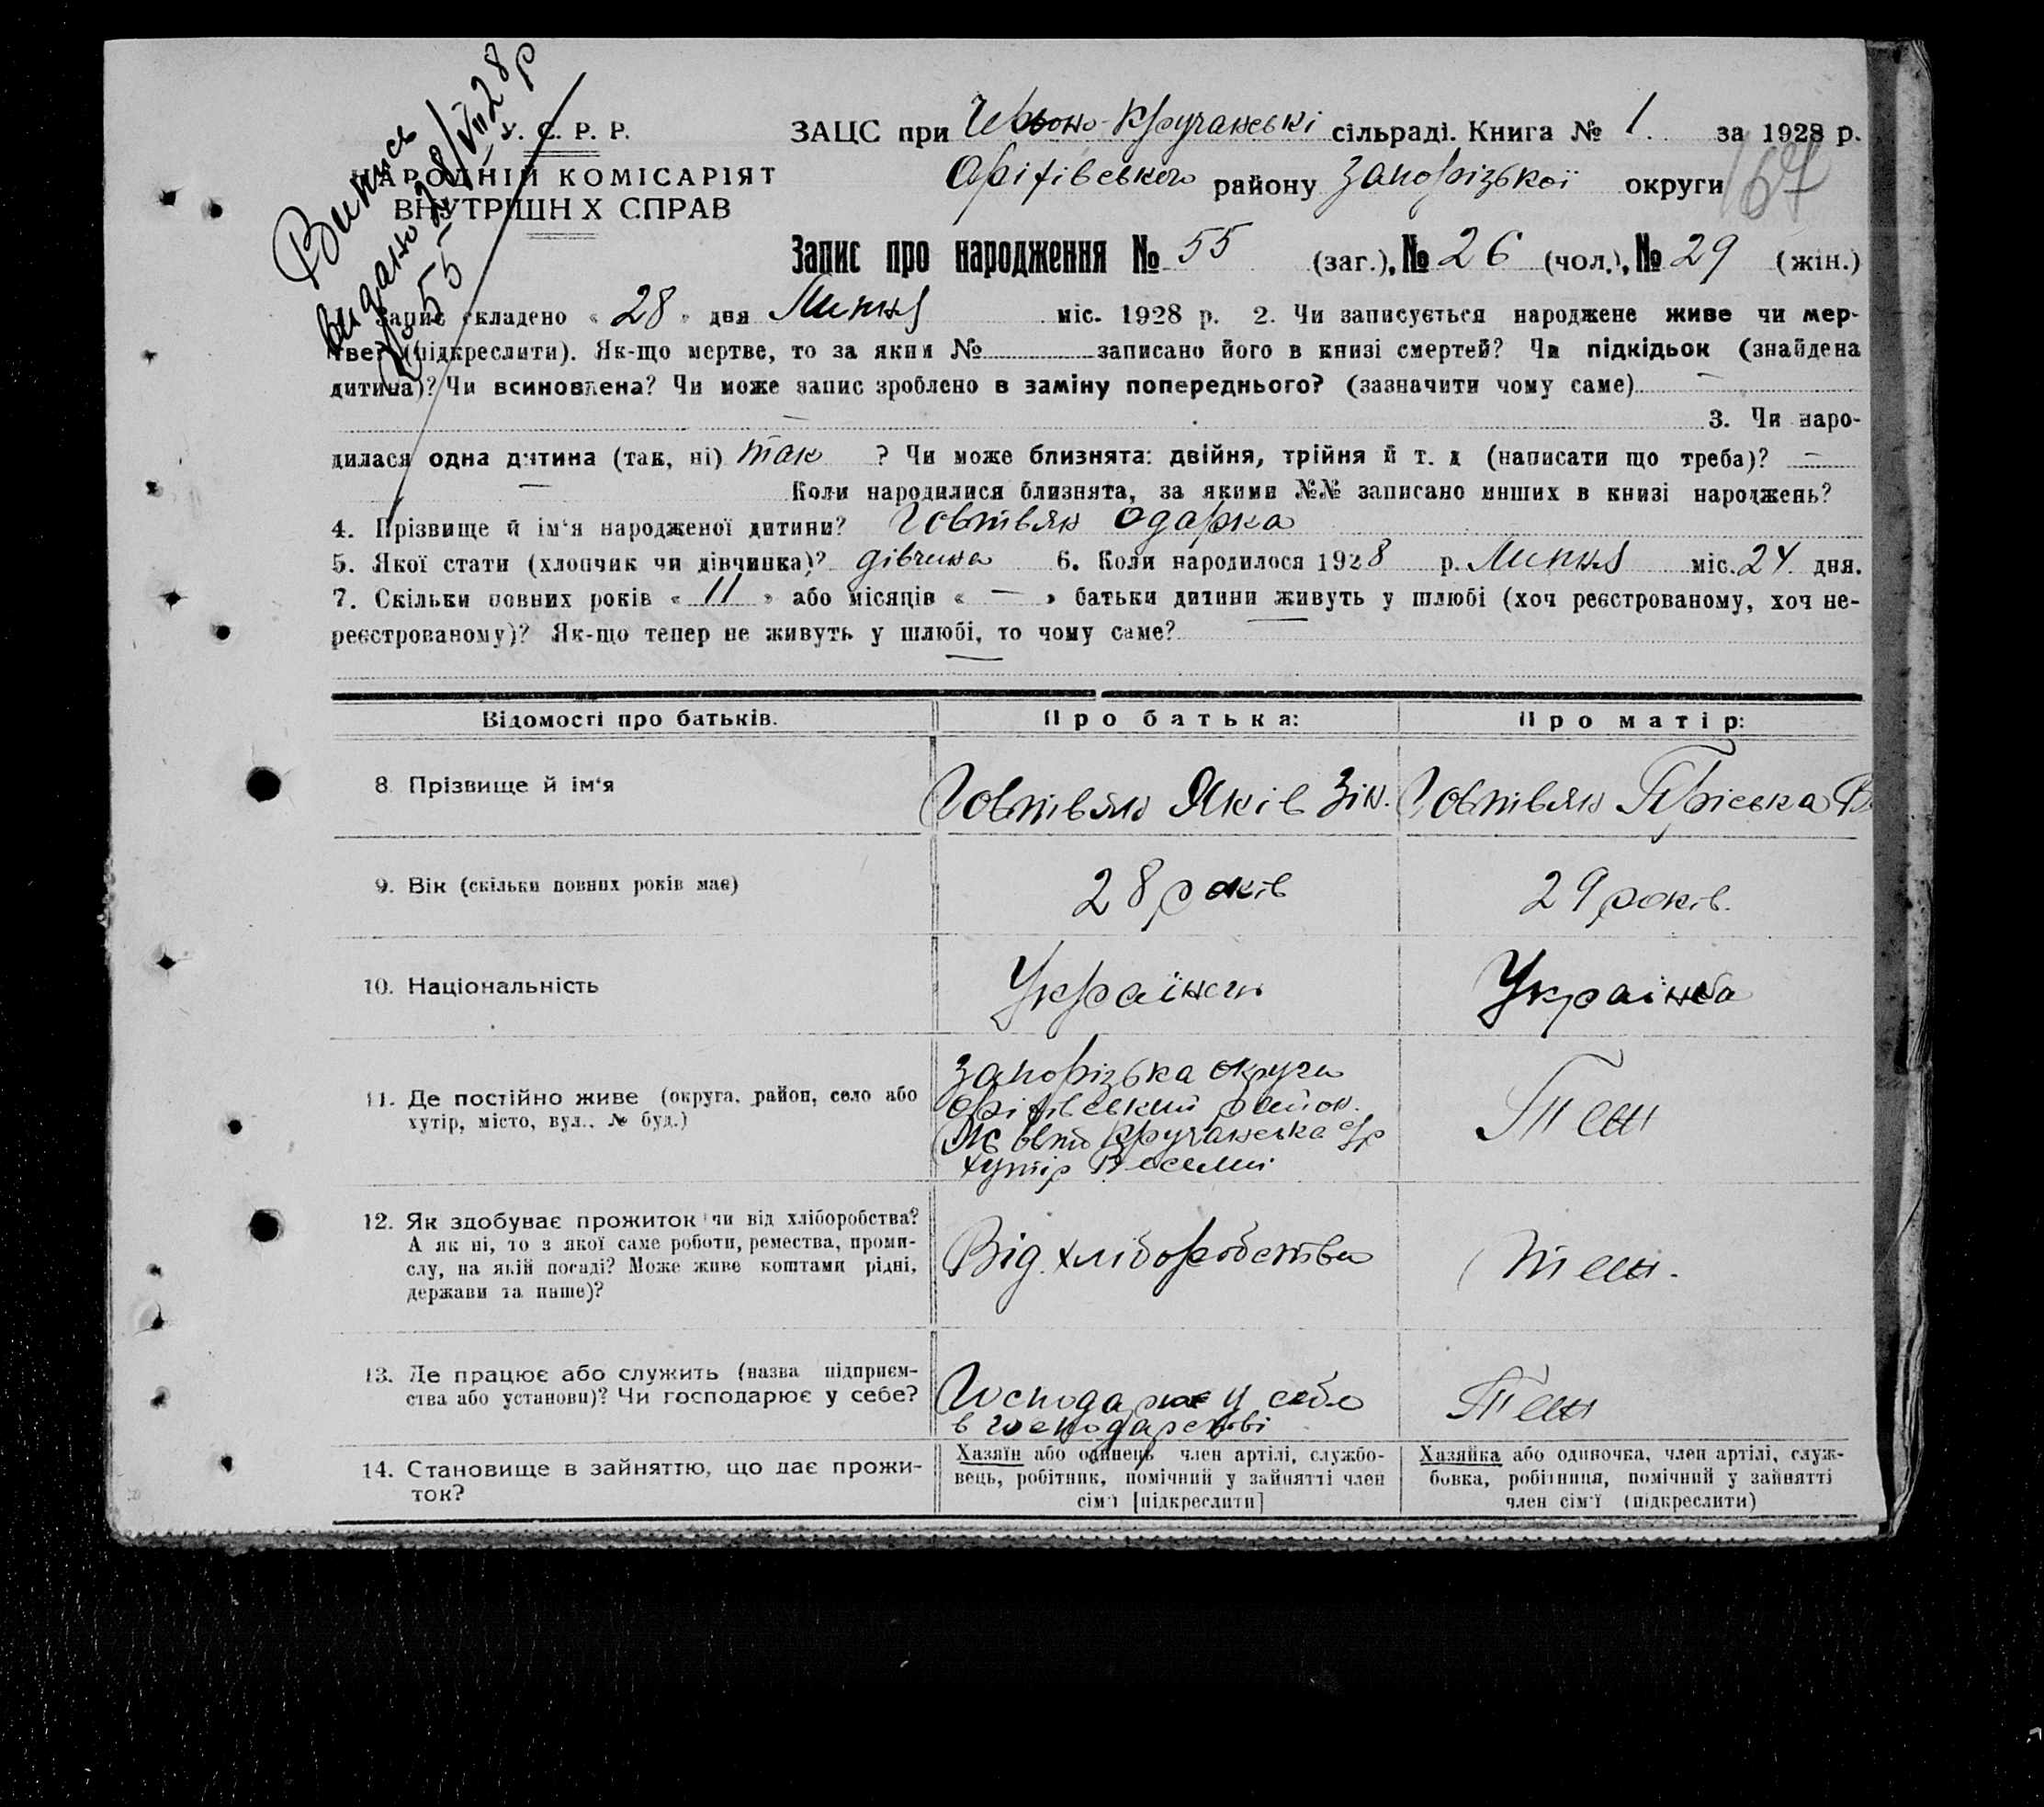 Випись
видано 28/VII 28 р
№ 55
У. С. Р. Р.
НАРОДНІЙ КОМІСАРІЯТ
ВНУТРІШН Х СПРАВ
ЗАЦС при Кручанські сільраді. Книга № 1. за 1928 р.
Оріхівського району Запорізької округи
167
Запис про народження № 55 (заг.), № 26 (чол.), № 29 (жін.)
Запис складено « 28 » дня Липня міс. 1928 р. 2. Чи записується народжене живе чи мер-
тве? (підкреслити). Як-що мертве, то за яким № записано його в книзі смертей? Чи підкідьок (знайдена
дитина)? Чи всиновлена? Чи може запис зроблено в заміну попереднього? (зазначити чому саме) —
— 3. Чи наро-
дилася одна дитина (так, ні) так ? Чи може близнята: двійня, трійня й т. д (написати що треба)? —
— Коли народилися близнята, за якими №№ записано инших в книзі народжень?
4. Прізвище й ім‘я народженої дитини? Говтвян Одарка
5. Якої стати (хлопчик чи дівчинка)? дівчина 6. Коли народилося 1928 р. Липня міс. 24 дня.
7. Скільки повних років « 11 » або місяців « — » батьки дитини живуть у шлюбі (хоч реєстрованому, хоч не-
реєстрованому)? Як-що тепер не живуть у шлюбі, то чому саме?
—
Відомості про батьків. Про батька: Про матір:
8. Прізвище й ім‘я Говтвян Яків Зік. Говтвян Пріська В
9. Вік (скільки повних років має) 28 років 29 років.
10. Національність Українец Українка
11. Де постійно живе (округа, район, село або
хутір, місто, вул., № буд.)
Запорізька округа
Оріхівський район.
Кручанська с/р
хутір Веселий
Теж
12. Як здобуває прожиток чи від хліборобства?
А як ні, то з якої саме роботи, ремества, проми-
слу, на якій посаді? Може живе коштами рідні,
держави та инше)?
Від хліборобства
Теж.
13. Де працює або служить (назва підприєм-
ства або установи)? Чи господарює у себе?
Господарює у себе
в господарстві
Теж
14. Становище в зайняттю, що дає прожи-
ток?
Хазяїн або одинець член артілі, службо-
вець, робітник, помічний у зайнятті член
сім‘ї [підкреслити]
Хазяйка або одиночка, член артілі, служ-
бовка, робітниця, помічний у зайнятті
член сім‘ї (підкреслити)